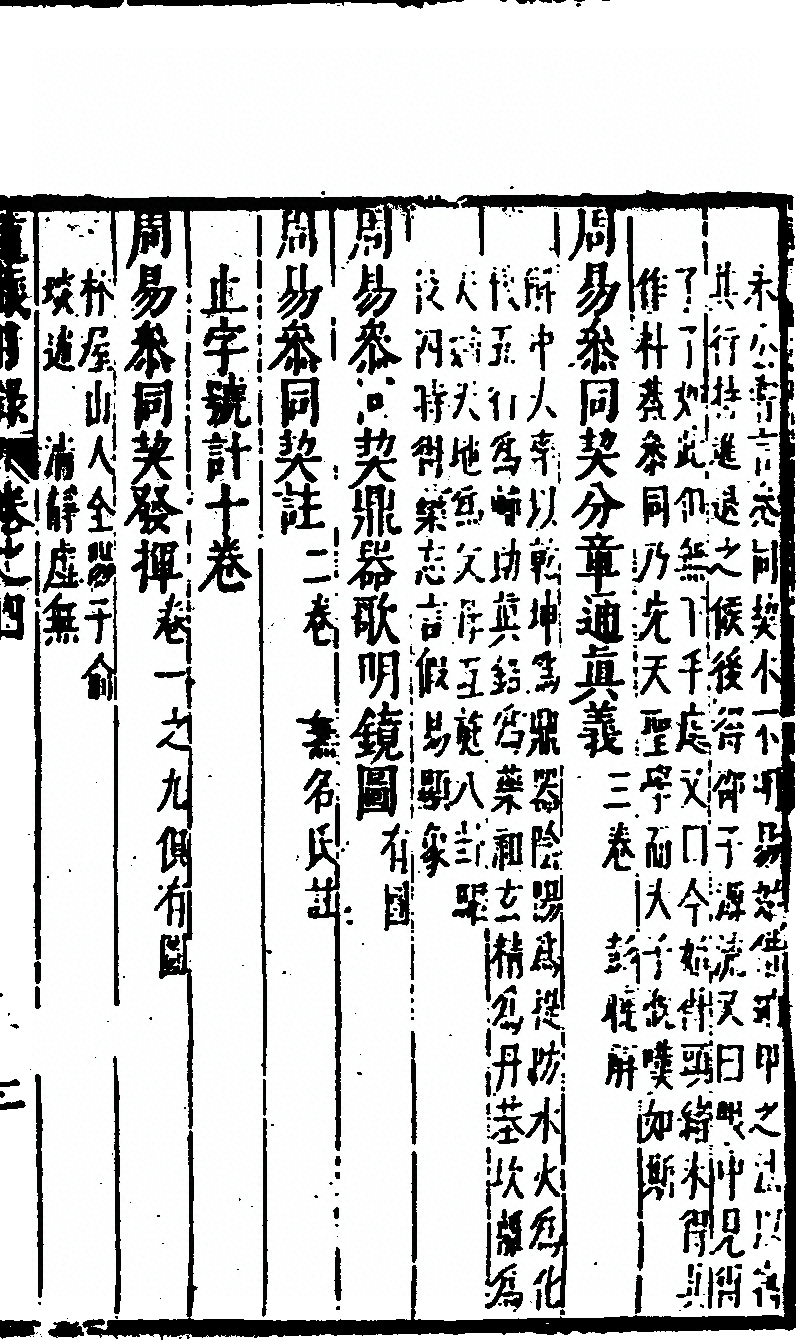 朱公嘗言參同契本不明易姑借此納甲之法以寓
其行持進退之候後得鄒子源流又曰眼中見得
了了如此但無下手處又曰今始得頭緒未得其
作料蓋參同乃先天聖學而夫子我嘆如斯
周易參同契分章通眞義三卷 彭曉解
解中大率以乾坤爲鼎器陰陽爲堤防水火爲化
機五行爲輔助眞鉛爲藥祖玄精爲丹基坎離爲
夫婦天地爲父母互施八卦
及四時得樂志言假易顯象
周易參同契鼎器歌明鏡圖有圖
周易參同契註二卷 無名氏註
止字號計十卷
周易參同契發揮卷一之九俱有圖
林屋山人全陽子俞
琰述 清靜虛無
目錄卷之四
二